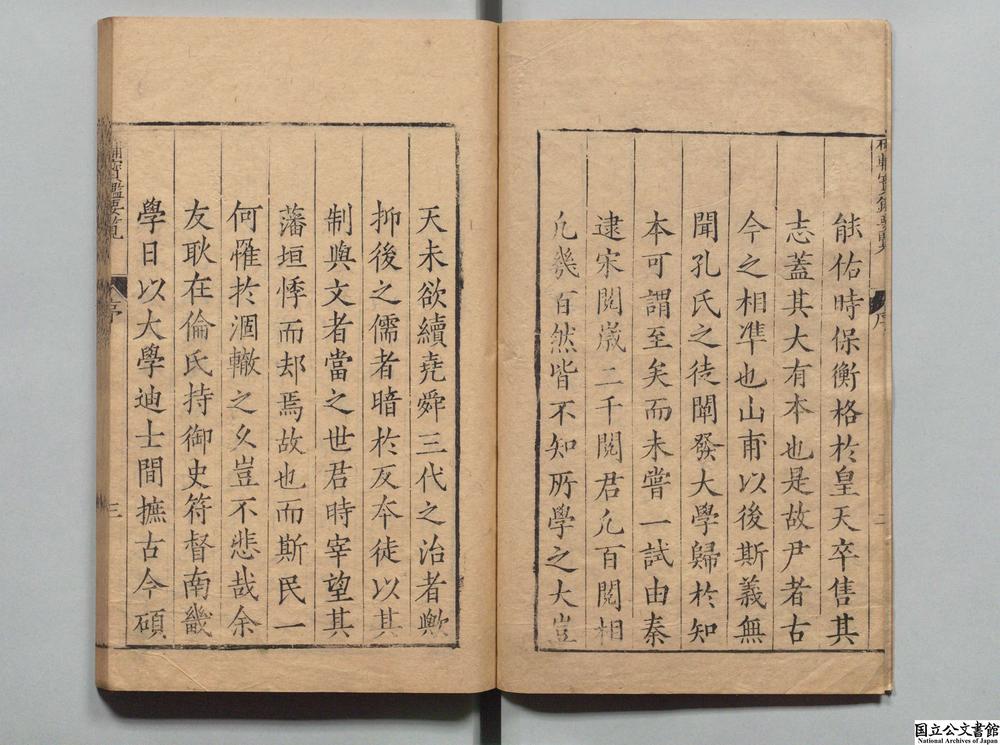 能佑時保衡格於皇天卒售其
志蓋其大有本也是故尹者古
今之相凖也山甫以後斯義無
聞孔氏之徒闡發大學歸於知
本可謂至矣而未嘗一試由秦
逮宋閱歳二千閱君凣百閱相
凣幾百然皆不知所學之大豈
序
二
天未欲續堯舜三代之治者歟
抑後之儒者暗於反本徒以其
制與文者當之世君時宰望其
藩垣悸而却焉故也而斯民一
何惟於涸轍之久豈不悲哉余
友耿在倫氏持御史符督南畿
學日以大學迪士間摭古今碩
輔寳鑑要覽
序
三
国立公文書館
National Archives of Japan